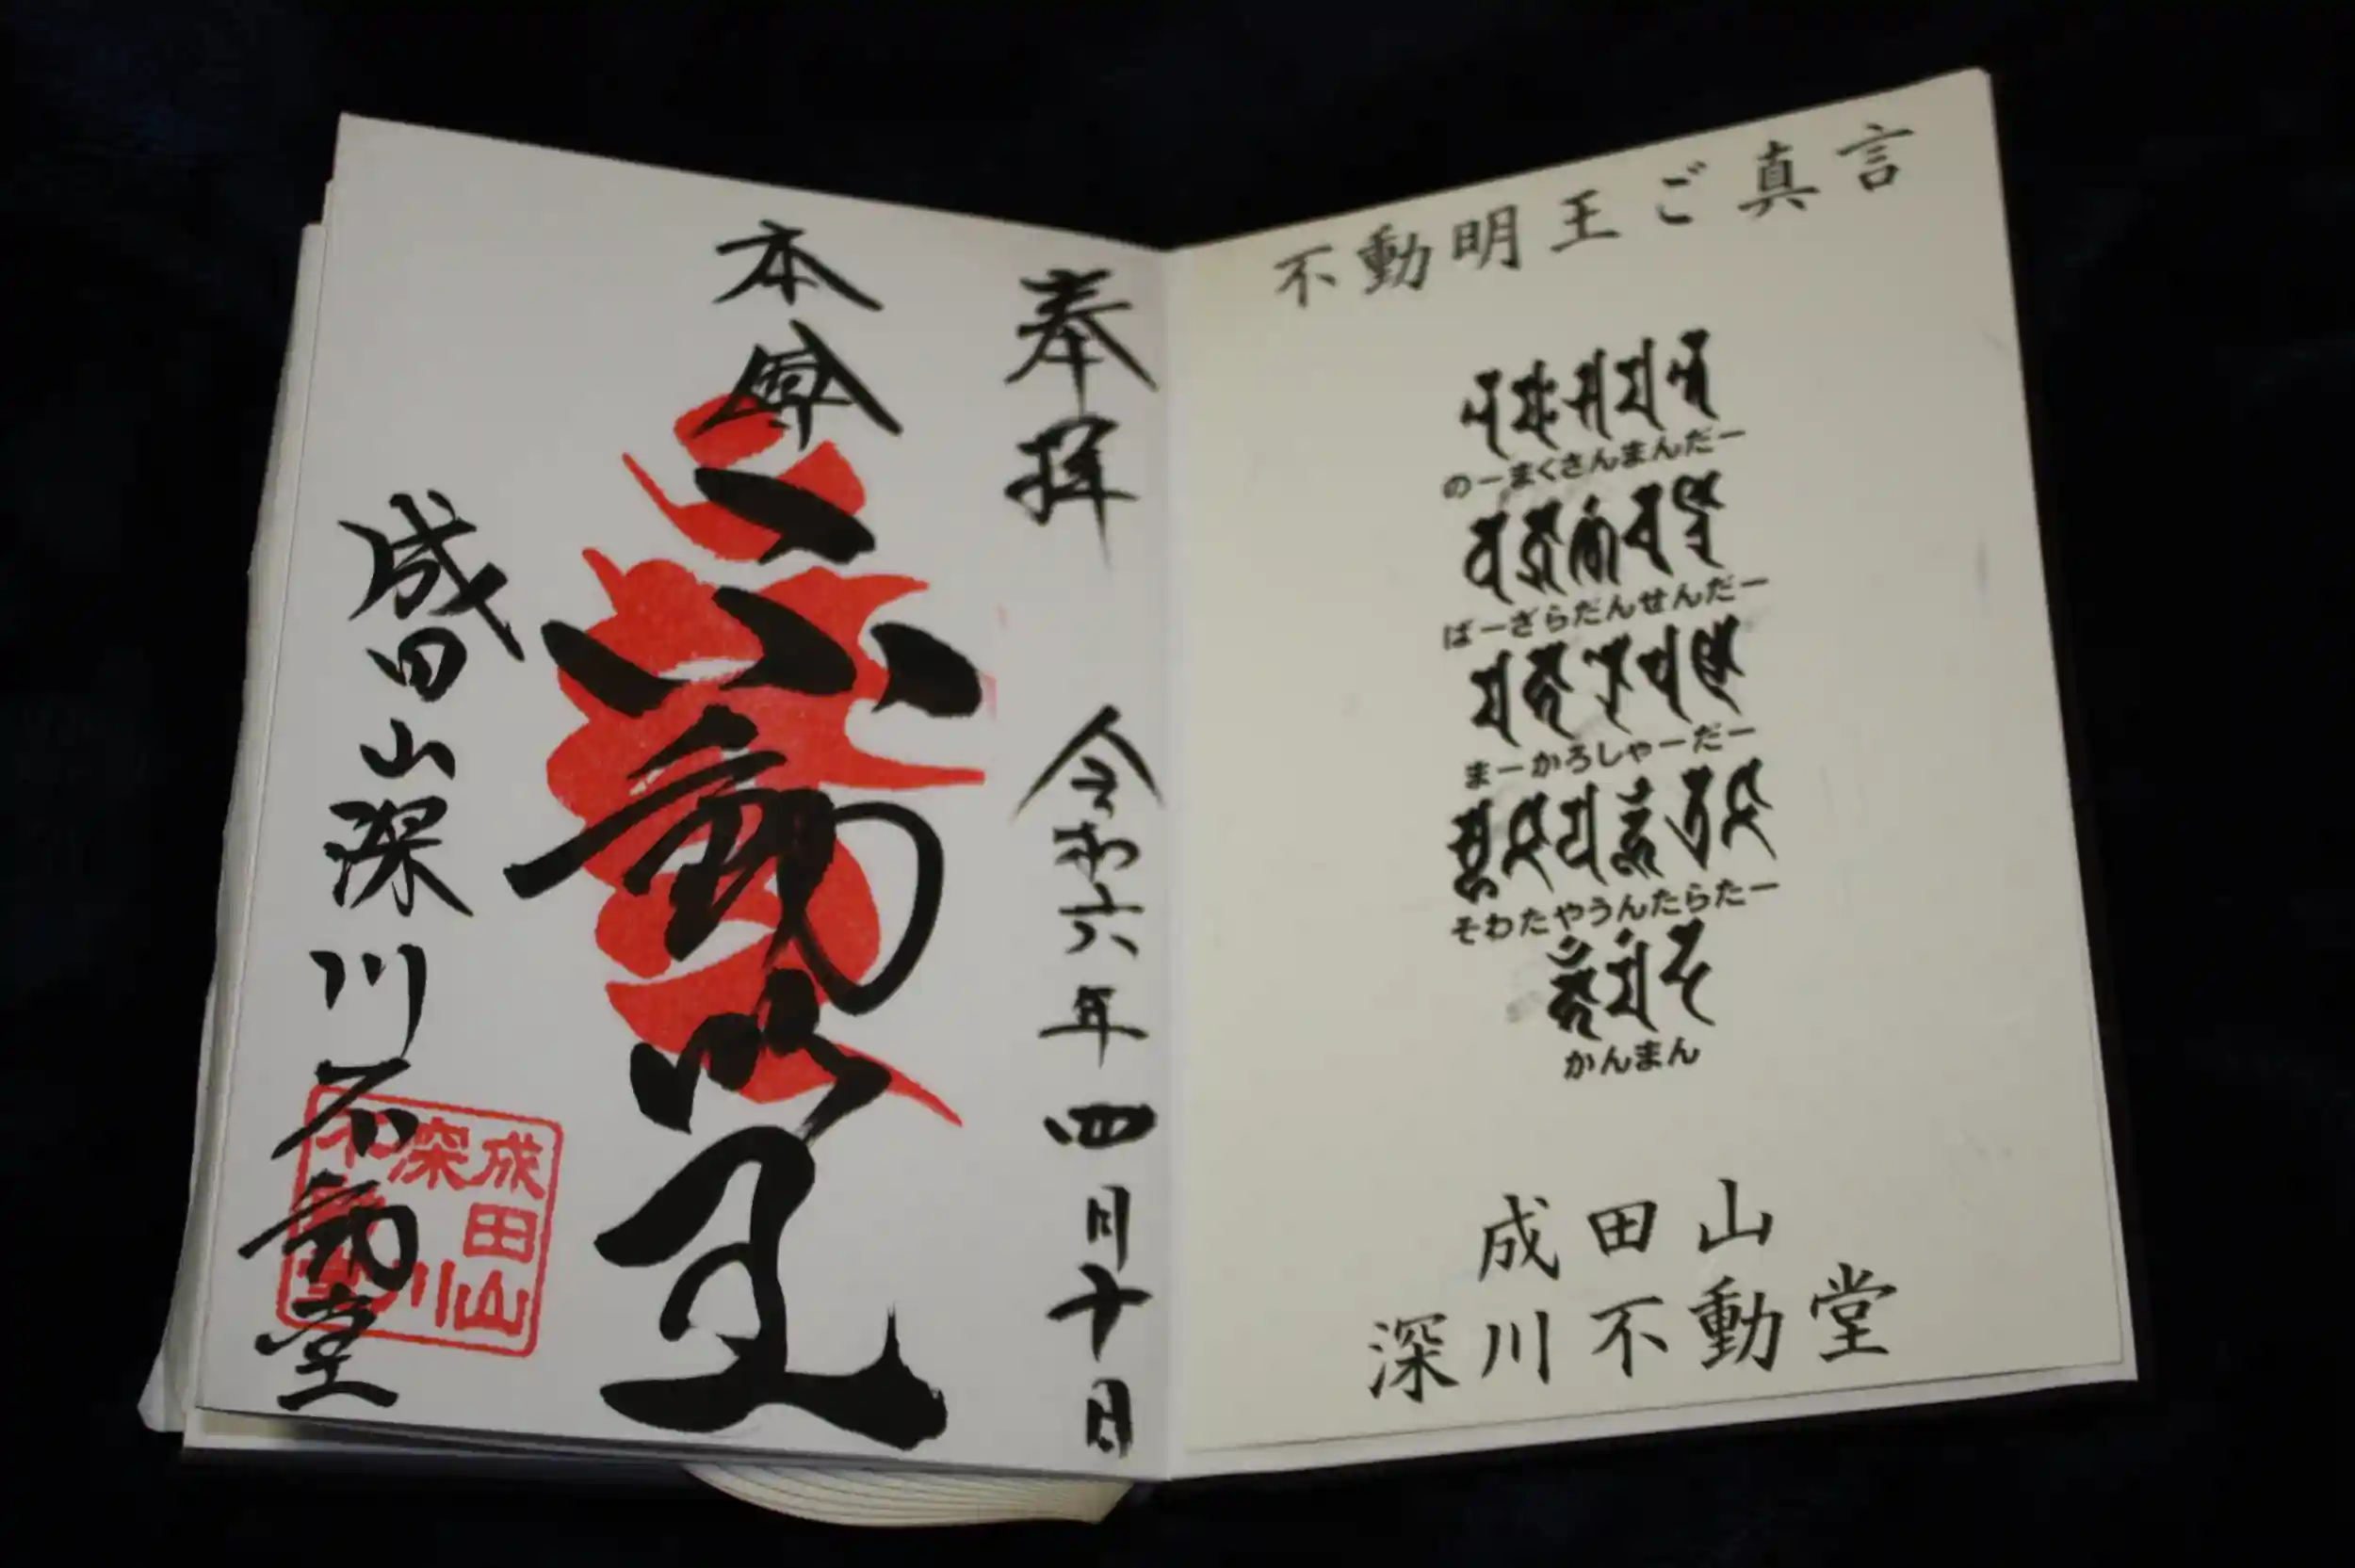 奉拝
令和六年四月十日
本尊
不動明王
成田山深川不動堂
成田山
深川
不動堂
不動明王ご真言
のーまくさんまんだー
ばーざらだんせんだー
まーかろしゃーだー
そわたやうんたらたー
かんまん
成田山
深川不動堂